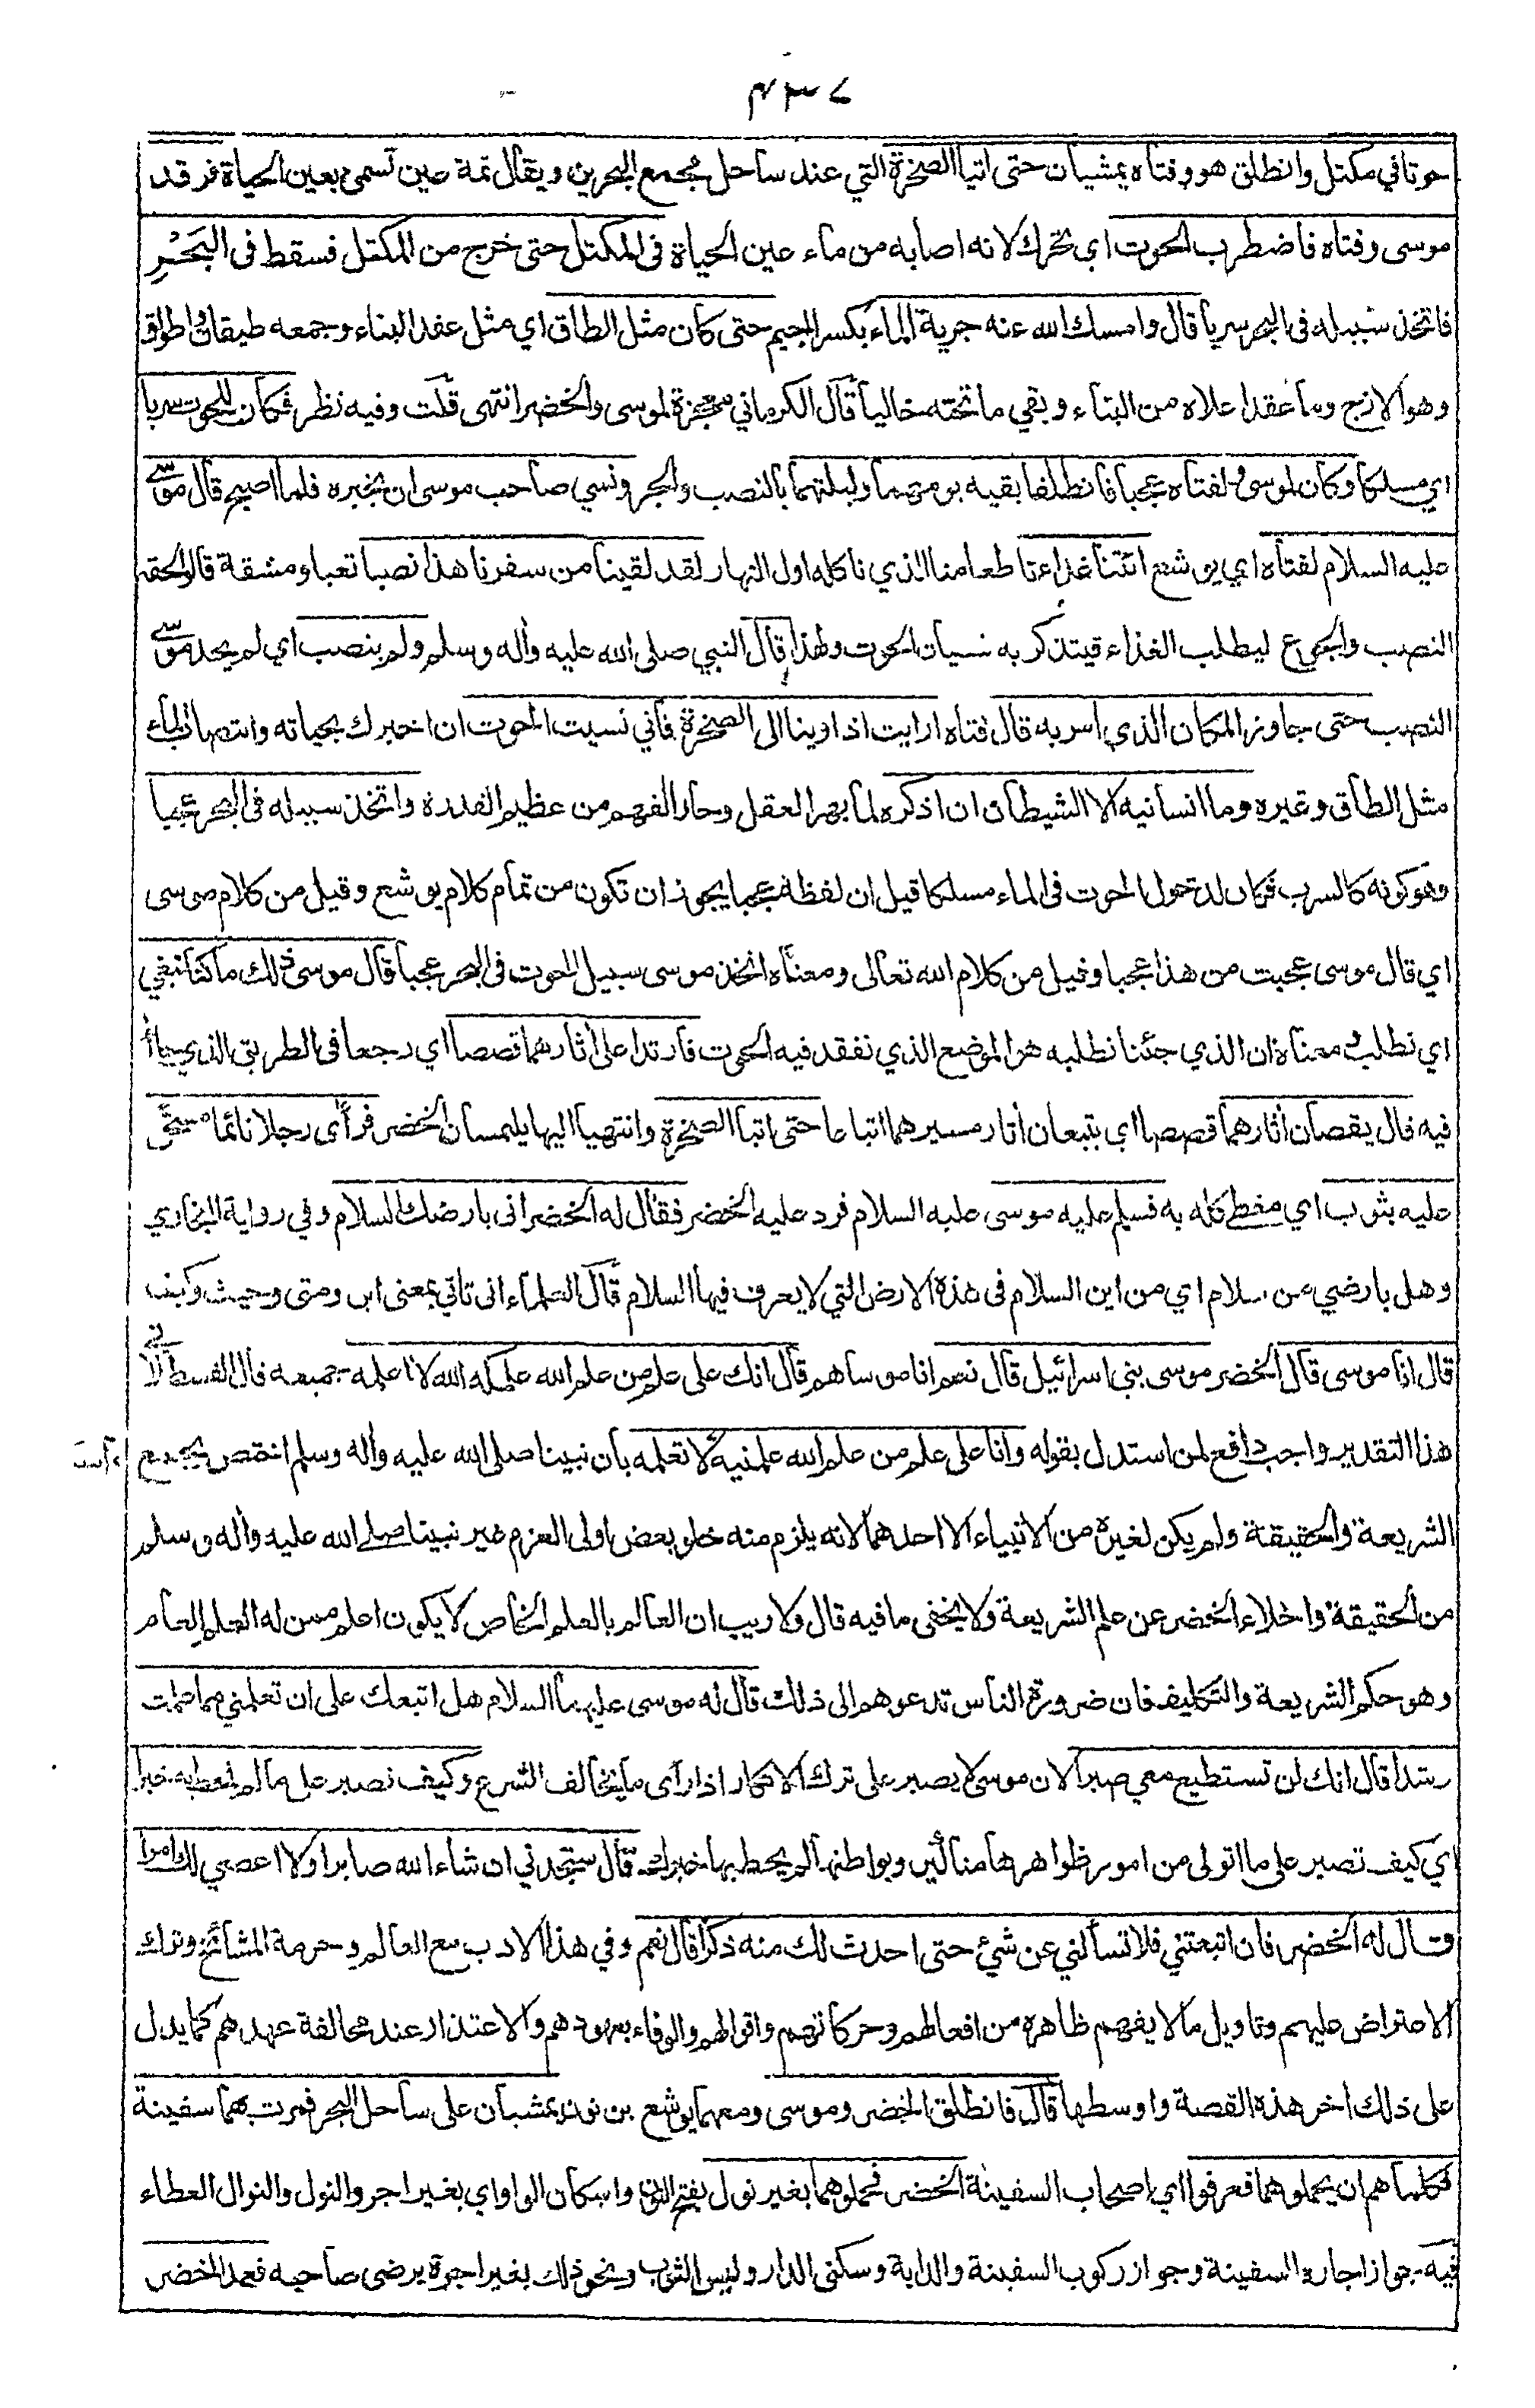 ٤٣٧
حوتا في مكتل وانطلق هو وفتاه يمشيان حتى اتيا الصخرة التي عند ساحل مجمع البحرين ويقال ثمة عين تسمى بعين الحياة فرقد
موسى وفتاه فاضطرب الحوت اي تحرك لانه اصابه من ماء عين الحياة في المكتل حتى خرج من المكتل فسقط في البَحْرِ
فاتخذ سبيله في البحر سربا قال وامسك الله عنه جرية الماء بكسر الجيم حتى كان مثل الطاق اي مثل عقد البناء وجمعه طيقان واطواق
وهو الازج وما عقد اعلاه من البناء وبقي ما تحته خاليا قال الكرماني معجزة لموسى والخضر انتهى قلت وفيه نظر فكان للحوت سربا
اي مسلكا وكان لموسى ولفتاه عجبا فانطلقا بقية يومهما وليلتهما بالنصب والجر ونسي صاحب موسى ان يخبره فلما اصبح قال موسى
عليه السلام لفتاه اي يوشع ائتنا غداءنا طعامنا الذي ناكله اول النهار لقد لقينا من سفرنا هذا نصبا تعبا ومشقة قالوا لحقه
النصب والجوع ليطلب الغذاء فيتذكر به نسيان الحوت ولهذا قال النبي صلى الله عليه واله وسلم ولم ينصب اي لم يجد موسى
النصب حتى جاوز المكان الذي امر به قال فتاه ارايت اذ اوينا الى الصخرة فاني نسيت الحوت ان اخبرك بحياته وانتصاب الماء
مثل الطاق وغيره وما انسانيه الا الشيطان ان اذكره لما بهر العقل وحار الفهم من عظيم القدرة واتخذ سبيله في البحر عجبا
وهو كونه كالسرب فكان لدخول الحوت في الماء مسلكا قيل ان لفظة عجبا يجوز ان تكون من تمام كلام يوشع وقيل من كلام موسى
اي قال موسى عجبت من هذا عجبا وقيل من كلام الله تعالى ومعناه اتخذ موسى سبيل الحوت في البحر عجبا قال موسى ذلك ما كنا نبغي
اي نطلب ومعناه ان الذي جئنا نطلبه هو الموضع الذي نفقد فيه الحوت فارتدا على اثارهما قصصا اي رجعا في الطريق الذي جاءا
فيه قال يقصان اثارهما قصصا اي يتبعان أثار مسيرهما اتباعا حتى اتيا الصخرة وانتهيا اليها يلتمسان الخضر فرأى رجلا نائما مسجى
عليه بثوب اي مغطى كله به فسلم عليه موسى عليه السلام فرد عليه الخضر فقال له الخضر انى بارضك السلام وفي رواية البخاري
وهل بارضي من سلام اي من اين السلام في هذة الارض التي لا يعرف فيها السلام قال العلماء انى تاتي بمعنى اين ومتى وحيث وكيف
قال انا موسى قال الخضر موسى بني اسرائيل قال نعم انا موساهم قال انك على علم من علم الله علمكه الله لا اعلمه جميعه قال القسطلاني
هذا التقدير واجب دافع لمن استدل بقوله وانا على علم من علم الله علمنيه لا تعلمه بان نبينا صلى الله عليه واله وسلم اختص بجمع
الشريعة والحقيقة ولم يكن لغيره من الانبياء الا احدهما لانه يلزم منه خلو بعض اولى العزم غير نبينا صلے الله عليه واله وسلم
من الحقيقة واخلاء الخضر عن علم الشريعة ولا يخفى ما فيه قال ولا ريب ان العالم بالعلم الخاص لا يكون اعلم ممن له العلم العام
وهو حكم الشريعة والتكليف فان ضرورة الناس تدعوهم الى ذلك قال له موسى عليهما السلام هل اتبعك على ان تعلمني مما علمت
رشدا قال انك لن تستطيع معي صبرا لان موسى لا يصبر على ترك الانكار اذا رأى ما يخالف الشرع وكيف تصبر على ما لم تحط به خبرا
اي كيف تصبر على ما اتولى من امور ظواهرها مناكير وبواطنها لم يحط بها خبرك قال ستجدني ان شاء الله صابرا ولا اعصي لك امرا
وقال له الخضر فان اتبعتني فلا تسألني عن شيء حتى احدث لك منه ذكرا قال نعم وفي هذا الادب مع العالم وحرمة المشائخ وترك
الاعتراض عليهم وتاويل ما لا يفهم ظاهره من افعالهم وحركاتهم واقوالهم والوفاء بعهودهم والاعتذار عند مخالفة عهدهم كما يدل
على ذلك اخر هذه القصة واوسطها قال فانطلق الخضر وموسى ومعهما يوشع بن نون يمشيان على ساحل البحر فمرت بهما سفينة
فكلماهم ان يحملوهما فعرفوا اي اصحاب السفينة الخضر فحملوهما بغير نول بفتح النون واسكان الواو اي بغير اجر والنول والنوال العطاء
فيه جواز اجارة السفينة وجواز ركوب السفينة والدابة وسكنى الدار ولبس الثوب ونحو ذلك بغير اجرة برضى صاحبه فعمد الخضر